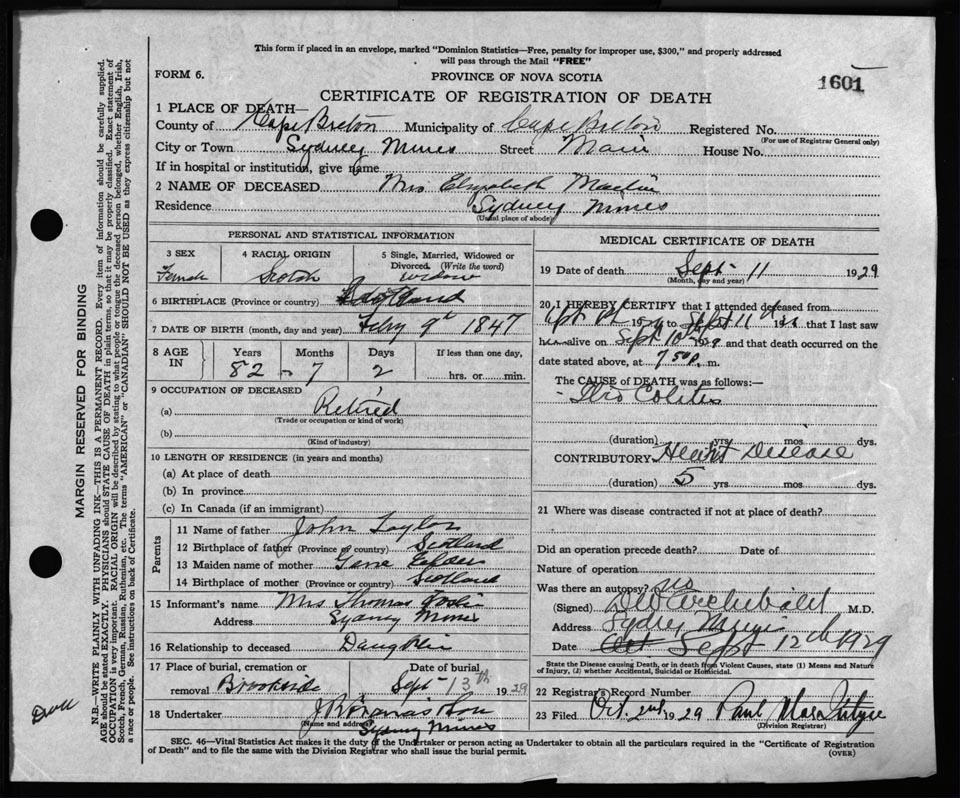 This form if placed in an envelope, marked "Dominion Statistics—Free, penalty for improper use, $300," and properly addressed
will pass through the Mail "FREE"
FORM 6.
PROVINCE OF NOVA SCOTIA
1601
CERTIFICATE OF REGISTRATION OF DEATH
1 PLACE OF DEATH—
County of Cape Breton Municipality of Cape Breton Registered No.
(For use of Registrar General only)
City or Town Sydney Mines Street Main House No.
If in hospital or institution, give name
2 NAME OF DECEASED Mrs Elizabeth Martin
Residence Sydney Mines
(Usual place of abode)
PERSONAL AND STATISTICAL INFORMATION
3 SEX 4 RACIAL ORIGIN 5 Single, Married, Widowed or
Divorced. (Write the word)
Female Scotch widow
6 BIRTHPLACE (Province or country) Scotland
7 DATE OF BIRTH (month, day and year) Feby 9th 1847
8 AGE IN Years Months Days If less than one day,
82 - 7 2 hrs. or min.
9 OCCUPATION OF DECEASED
(a) Retired
(Trade or occupation or kind of work)
(b)
(Kind of industry)
10 LENGTH OF RESIDENCE (in years and months)
(a) At place of death
(b) In province
(c) In Canada (if an immigrant)
Parents
11 Name of father John Taylor
12 Birthplace of father (Province or country) Scotland
13 Maiden name of mother Jane
14 Birthplace of mother (Province or country) Scotland
15 Informant's name Mrs Thomas
Address Sydney Mines
16 Relationship to deceased Daughter
17 Place of burial, cremation or Date of burial
removal Brookside Sept 13th 1929
18 Undertaker Son
(Name and address) Sydney Mines
MEDICAL CERTIFICATE OF DEATH
19 Date of death Sept 11 1929
(Month, day and year)
20 I HEREBY CERTIFY that I attended deceased from
19 to Sept 11 19 that I last saw
h alive on Sept 10th 1929 and that death occurred on the
date stated above, at 7 50 p. m.
The CAUSE of DEATH was as follows:—
Colitis
(duration) yrs. mos. dys.
CONTRIBUTORY Heart Disease
(duration) 5 yrs. mos. dys.
21 Where was disease contracted if not at place of death?
Did an operation precede death? Date of
Nature of operation
Was there an autopsy? no
(Signed) Archibald M.D.
Address Sydney Mines
Date Oct Sept 12th 1929
State the Disease causing Death, or in death from Violent Causes, state (1) Means and Nature
of Injury, (2) whether Accidental, Suicidal or Homicidal.
22 Registrar's Record Number
23 Filed Oct. 2nd 1929 Paul MacIntyre
(Division Registrar)
SEC. 46—Vital Statistics Act makes it the duty of the Undertaker or person acting as Undertaker to obtain all the particulars required in the "Certificate of Registration
of Death" and to file the same with the Division Registrar who shall issue the burial permit. (OVER)
MARGIN RESERVED FOR BINDING
N.B.—WRITE PLAINLY WITH UNFADING INK—THIS IS A PERMANENT RECORD. Every item of information should be carefully supplied.
AGE should be stated EXACTLY. PHYSICIANS should STATE CAUSE OF DEATH in plain terms, so that it may be properly classified. Exact statement of
OCCUPATION is very important. RACIAL ORIGIN will be described by stating to what people or tongue the deceased person belonged, whether English, Irish,
Scotch, French, German, Russian, Ruthenian, etc. The terms "AMERICAN" or "CANADIAN" SHOULD NOT BE USED as they express citizenship but not
a race or people. See instructions on back of Certificate.